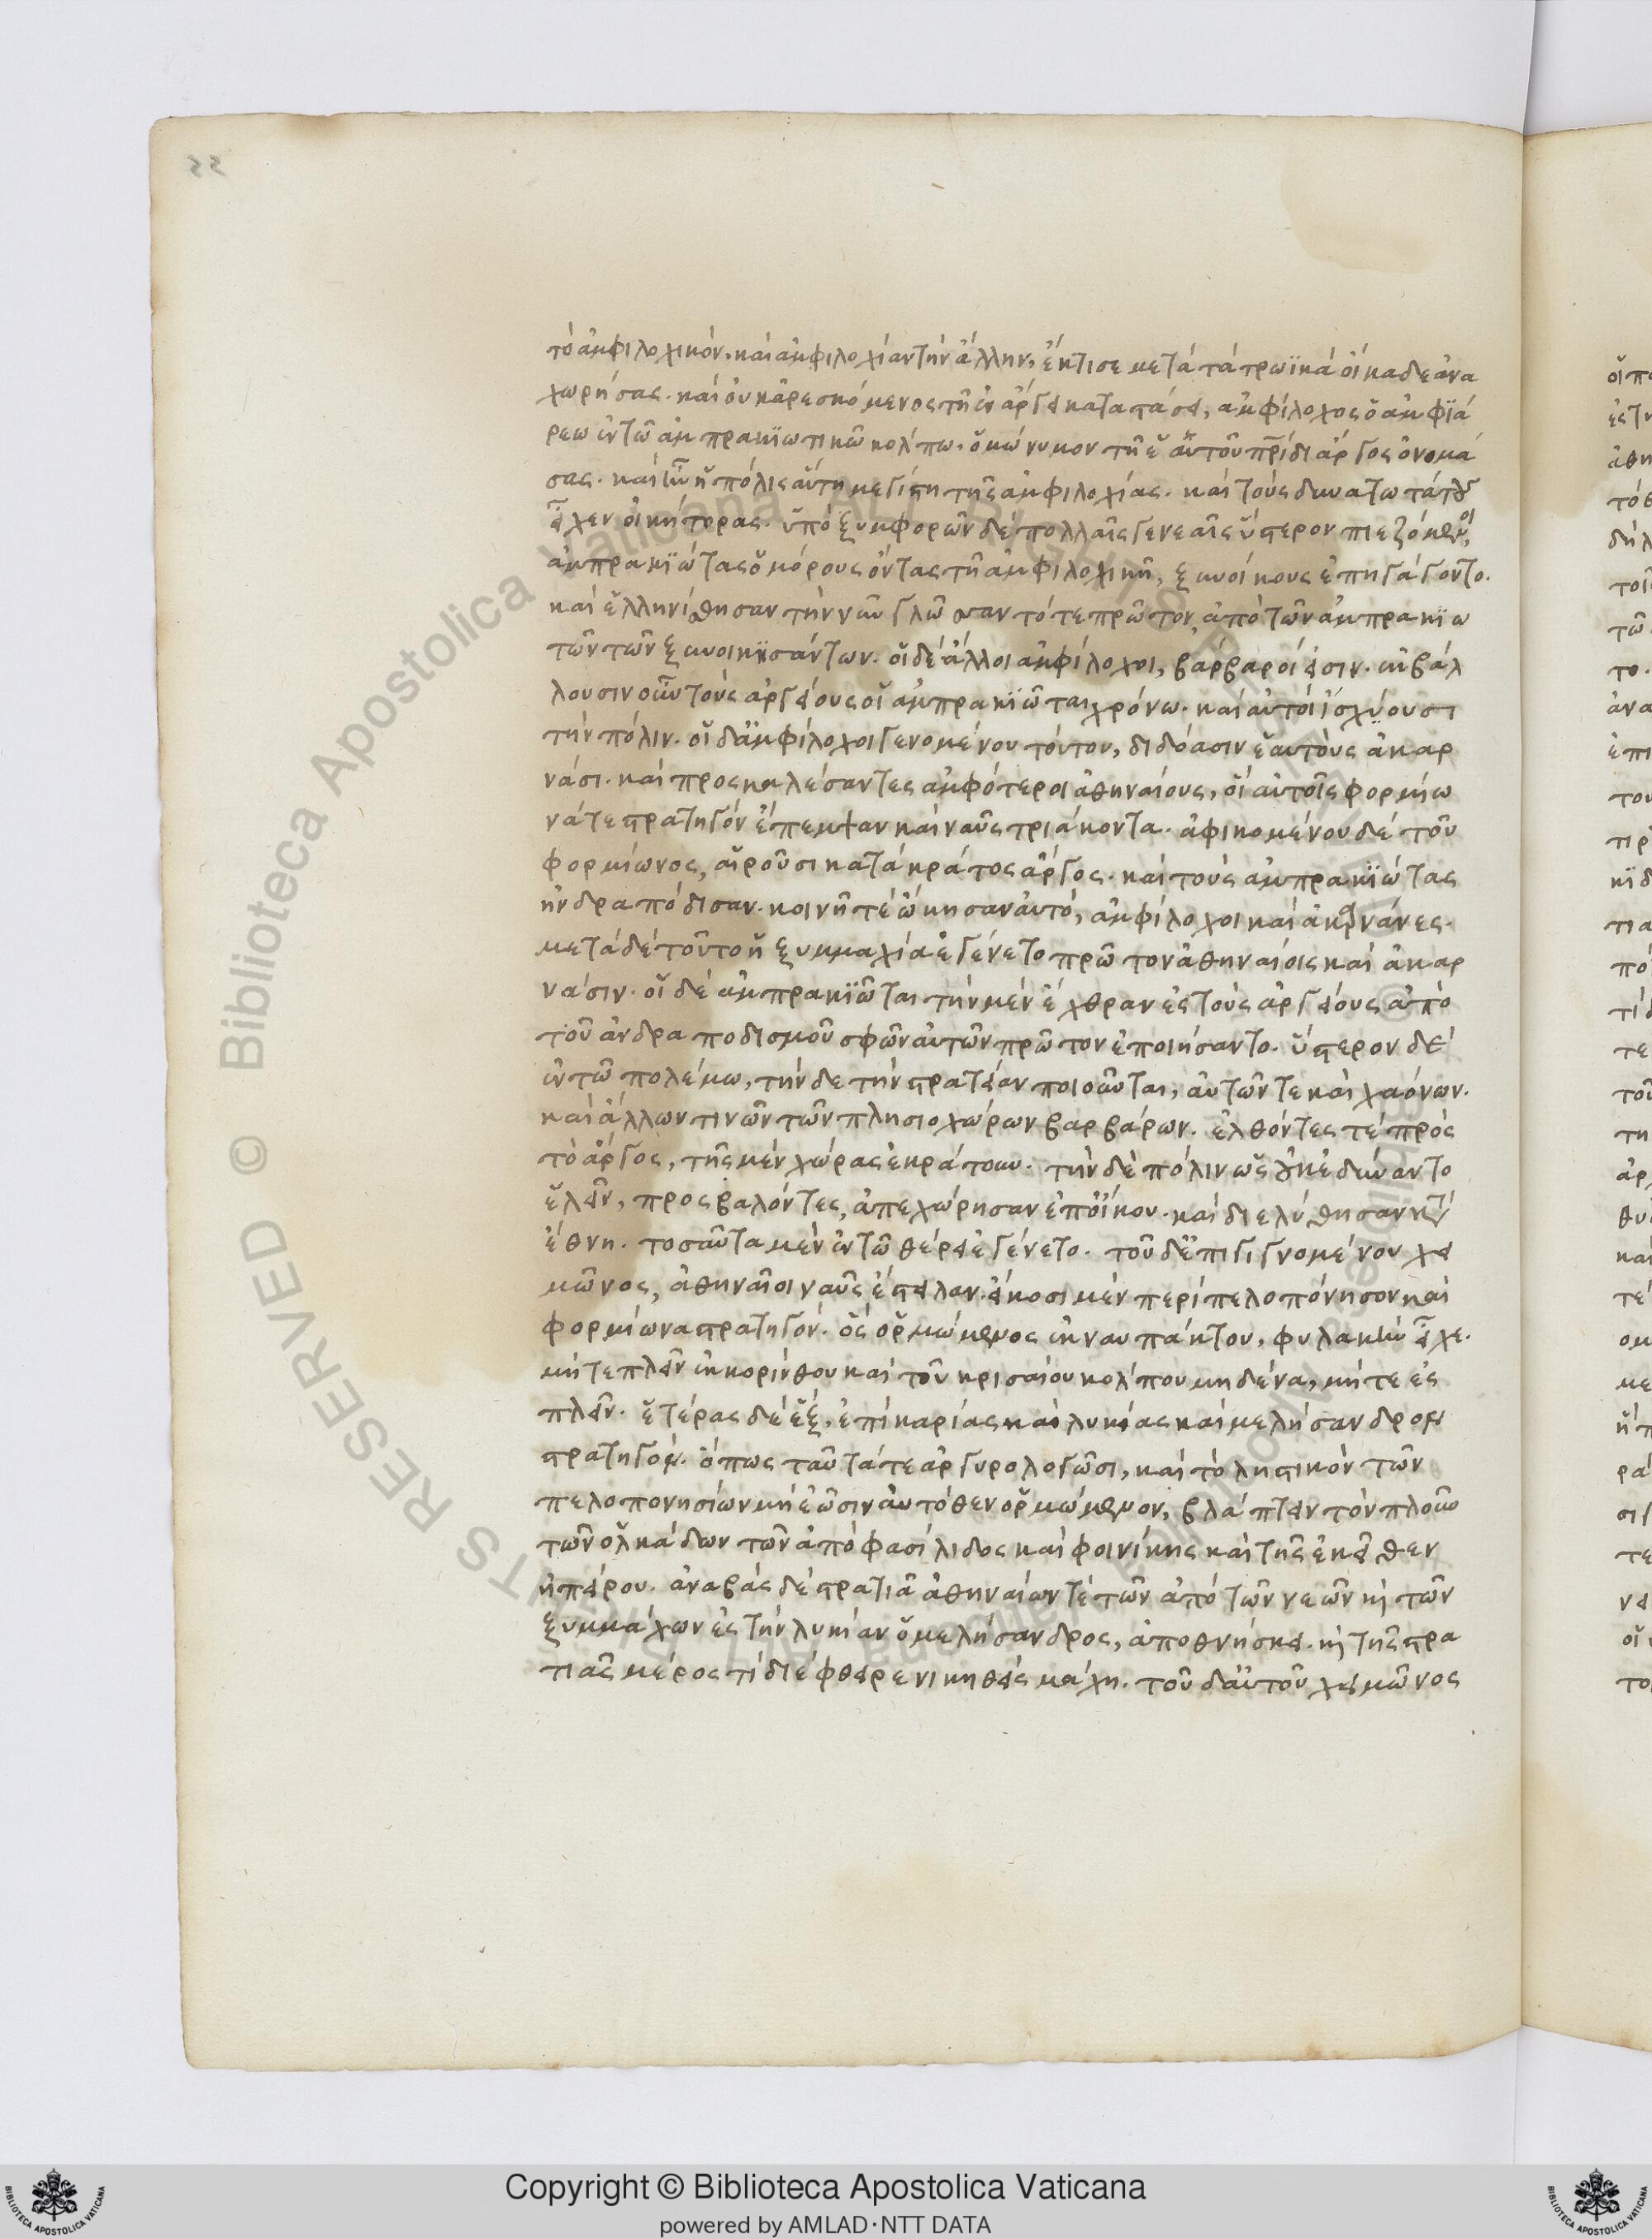 τὸ ἀμφιλοχικόν, καὶ ἀμφιλοχίαν τὴν ἄλλην, ἔκτισε μετὰ τὰ τρωϊκὰ οἴκαδε ἀνα
χωρήσας. καὶ οὐκ ἀρεσκόμενος τῆ ἐν ἄργει καταστάσει, ἀμφίλοχος ὁ ἀμφϊά
ρεω ἐν τῶ ἀμπρακϊωτικῶ κόλπω. ὁμώνυμον τῆ ἑαυτοῦ πρίδι ἄργος ὀνομά
σας. καὶ ἦν ἡ πόλις αὕτη μεγίστη τῆς ἀμφιλοχίας. καὶ τοὺς δυνατωτάτους
εἶχεν οἰκήτορας. ὑπὸ ξυμφορῶν δὲ πολλαῖς γενεαῖς ὕστερον πιεζόμενοι,
ἀμπρακϊώτας ὁμόρους ὄντας τῆ ἀμφιλοχικῆ, ξυνοίκους ἐπηγάγοντο.
καὶ ἑλληνίσθησαν τὴν νῦν γλῶσσαν τότε πρῶτον, ἀπὸ τῶν ἀμπρακϊω
τῶν τῶν ξυνοικησάντων. οἱ δὲ ἄλλοι ἀμφίλοχοι, βάρβαροί εἰσιν. ἐκβάλ
λουσιν οὖν τοὺς ἀργείους οἱ ἀμπρακϊῶται χρόνω. καὶ αὐτοὶ ἰσχύουσι
τὴν πόλιν. οἱ δ' ἀμφίλοχοι γενομένου τούτου, διδόασιν ἑαυτοὺς ἀκαρ
νᾶσι. καὶ προσκαλέσαντες ἀμφότεροι ἀθηναίους, οἳ αὐτοῖς φορμίω
νά τε στρατηγὸν ἔπεμψαν καὶ ναῦς τριάκοντα. ἀφικομένου δὲ τοῦ
φορμίωνος, αἱροῦσι κατὰ κράτος ἄργος. καὶ τοὺς ἀμπρακϊώτας
ἠνδραπόδισαν. κοινῆ τὲ ᾤκησαν αὐτό, ἀμφίλοχοι καὶ ἀκαρνάνες.
μετὰ δὲ τοῦτο ἡ ξυμμαχία ἐγένετο πρῶτον ἀθηναίοις καὶ ἀκαρ
νᾶσιν. οἱ δὲ ἀμπρακϊῶται τὴν μὲν ἔχθραν ἐς τοὺς ἀργείους ἀπὸ
τοῦ ἀνδραποδισμοῦ σφῶν αὐτῶν πρῶτον ἐποιήσαντο. ὕστερον δὲ
ἐν τῶ πολέμω, τήνδε τὴν στρατείαν ποιοῦνται, αὐτῶν τε καὶ χαόνων.
καὶ ἄλλων τινῶν τῶν πλησιοχώρων βαρβάρων. ἐλθόντες τὲ πρὸς
τὸ ἄργος, τῆς μὲν χώρας ἐκράτουν. τὴν δὲ πόλιν ὡς οὐκ ἐδύναντο
ἑλεῖν, προσβαλόντες, ἀπεχώρησαν ἐπ' οἴκου. καὶ διελύθησαν κατὰ
ἔθνη. τοσαῦτα μὲν ἐν τῶ θέρει ἐγένετο. τοῦ δ' ἐπιγιγνομένου χει
μῶνος, ἀθηναῖοι ναῦς ἔστειλαν. εἴκοσι μὲν περὶ πελοπόνησον καὶ
φορμίωνα στρατηγόν. ὃς ὁρμώμενος ἐκ ναυπάκτου, φυλακὴν εἶχε.
μήτ' ἐκπλεῖν ἐκ κορίνθου καὶ τοῦ κρισαίου κόλπου μηδένα, μήτε ἐς
πλεῖν. ἑτέρας δὲ ἕξ, ἐπὶ καρίας καὶ λυκίας καὶ μελήσανδρον
στρατηγόν. ὅπως ταῦτά τε ἀργυρολογῶσι, καὶ τὸ ληστικὸν τῶν
πελοπονησίων μὴ ἐῶσιν αὐτόθεν ὁρμώμενον, βλάπτειν τὸν πλοῦν
τῶν ὁλκάδων τῶν ἀπὸ φασίλιδος καὶ φοινίκης καὶ τῆς ἐκεῖθεν
ἠπείρου. ἀναβὰς δὲ στρατιᾶ ἀθηναίων τὲ τῶν ἀπὸ τῶν νεῶν κὶ τῶν
ξυμμάχων ἐς τὴν λυκίαν ὁ μελήσανδρος, ἀποθνήσκει. κὶ τῆς στρα
τιᾶς μέρος τὶ διέφθειρε νικηθεὶς μάχη. τοῦ δ' αὐτοῦ χειμῶνος
Copyright © Biblioteca Apostolica Vaticana
powered by AMLAD·NTT DATA